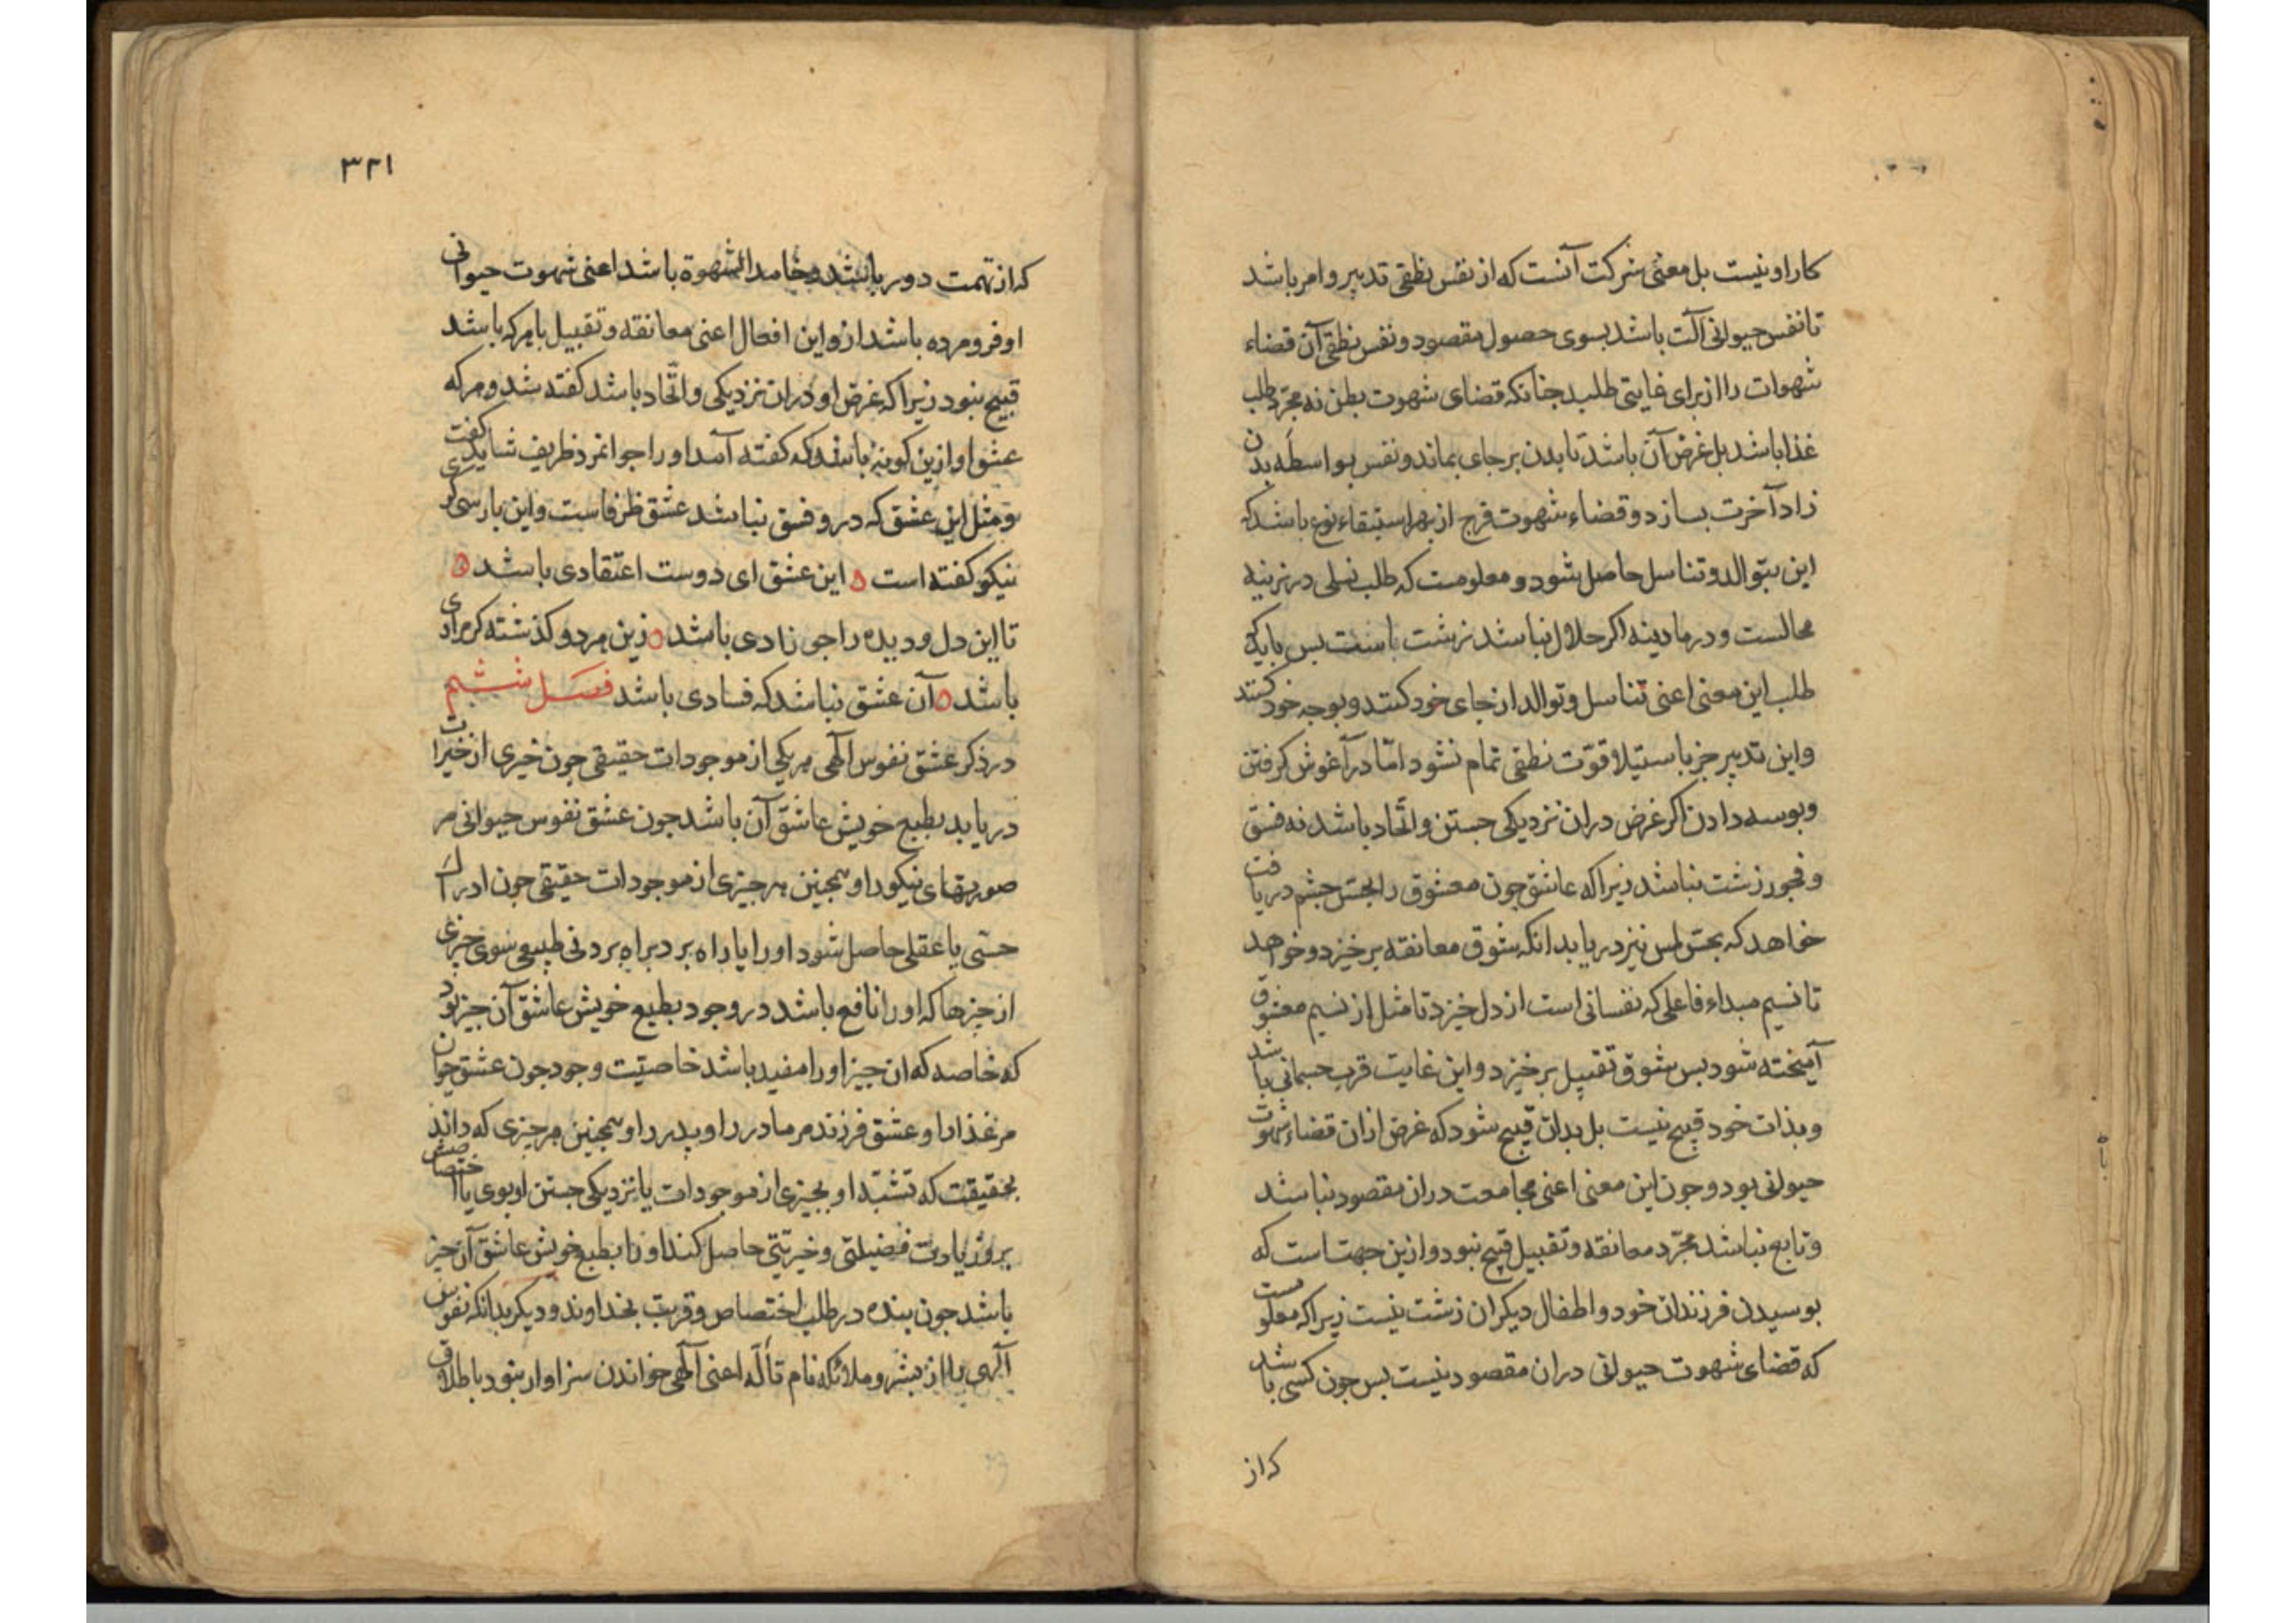 کار او نیست بل معنی شرکت آنست که از نفس نطقی تدبیر و امر باشد
تا نفس حیوانی آلت باشد بسوی حصول مقصود و نفس نطقی آن قضاء
شهوات را از برای غایتی طلبد جنانکه قضای شهوت بطن نه مجرّد طلب
غذا باشد بل غرض آن باشد تا بدن بر جای بماند و نفس بواسطه بدن
زاد آخرت بسازد و قضاء شهوت فرج از بهر استبقاء نوع باشد که
این بتوالد و تناسل حاصل شود و معلومست که طلب نسلی در نرینه
محالست و در مادینه اکر حلال نباشد زشت باست بس باید که
طلب این معنی اعنی تناسل و توالد از جای خود کنند و بوجه خود کنند
و این تدبیر جز باستیلا قوّت نطقی تمام نشود امّا در آغوش کرفتن
و بوسه دادن اکر غرض دران نزدیکی جستن و اتّحاد باشد نه فسق
و فجور زشت نباشد زیرا که عاشق جون معشوق را بحسّ جشم دریافت
خواهد که بحسّ لمس نیز دریابد انکه شوق معانقه برخیزد و خواهد
تا نسیم مبداء فاعلی که نفسانی است از دل خیزد تا مثل از نسیم معشوق
آمیخته شود بس شوق تقبیل برخیزد و این غایت قرب جسمانی باشد
و بذات خود قبیح نیست بل بدان قبیح شود که غرض ازان قضاء شهوت
حیوانی بود و جون این معنی اعنی مجامعت دران مقصود نباشد
و تابع نباشد مجرّد معانقه و تقبیل قبیح نبود و ازین جهت است که
بوسیدن فرزندان خود و اطفال دیکران زشت نیست زیرا که معلومست
که قضای شهوت حیوانی دران مقصود نیست بس جون کسی باشد
که از
۳۲۱
که از تهمت دور باشد و خامد الشهوة باشد اعنی شهوت حیوانی
او فرو مرده باشد ازو این افعال اعنی معانقه و تقبیل با هر که باشد
قبیح نبود زیرا که غرض او دران نزدیکی و اتّحاد باشد کفته شد و هر که
عشق او ازین کونه باشد که کفته آمد او را جوانمرد ظریف شاید کفت
و مثل این عشق که درو فسق نباشد عشق ظرفاست و این بارسی کری
نیکو کفته است ه این عشق ای دوست اعتقادی باشد ه
تا این دل و دیده را جی زادی باشد ه زین هر دو کذشته کر مرادی
باشد ه آن عشق نباشد که فسادی باشد فصل ششم
در ذکر عشق نفوس الهی هر یکی از موجودات حقیقی جون خیری از خیرات
دریابد بطبع خویش عاشق آن باشد جون عشق نفوس حیوانی مر
صورتهای نیکو را و همجنین هر جیزی از موجودات حقیقی جون ادراک
حسّی یا عقلی حاصل شود او را یا راه برد براه بردنی طبیعی سوی جیزی
از جیزها که او را نافع باشد در وجود بطبع خویش عاشق آن جیز بود
که خاصه که ان جیز او را مفید باشد خاصیّت وجود جون عشق حیوان
مر غذا را و عشق فرزند مر مادر را و پدر را و همجنین هر جیزی که داند
بحقیقت که تشبّه او بجیزی از موجودات یا نزدیکی جستن او بوی یا اختصاصش
برو زیادت فضیلتی و خیریّتی حاصل کند او را بطبع خویش عاشق آن جیز
باشد جون بنده در طلب اختصاص و قربت بخداوند و دیکر بدانکه نفوس
الهی را از بشر و ملائکه نام تألّه اعنی الهی خواندن سزاوار نبود باطلاق